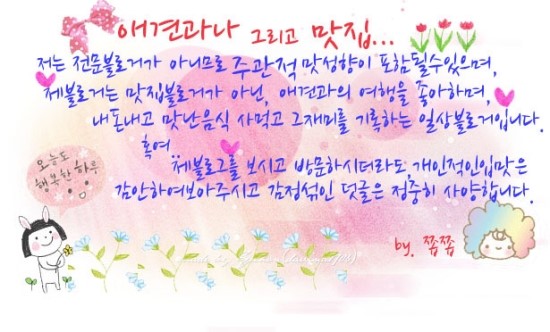 애견과나 그리고 맛집...
저는 전문블로거가 아니므로 주관적 맛성향이 포함될수있으며,
제블로거는 맛집블로거가 아닌, 애견과의 여행을 좋아하며,
내돈내고 맛난음식 사먹고 그재미를 기록하는 일상블로거입니다.
혹여
제블로그를 보시고 방문하시더라도, 개인적인입맛은
감안하여보아주시고 감정섞인 덧글은 정중히 사양합니다.
오늘도
행복한 하루
by. 쯉쯉